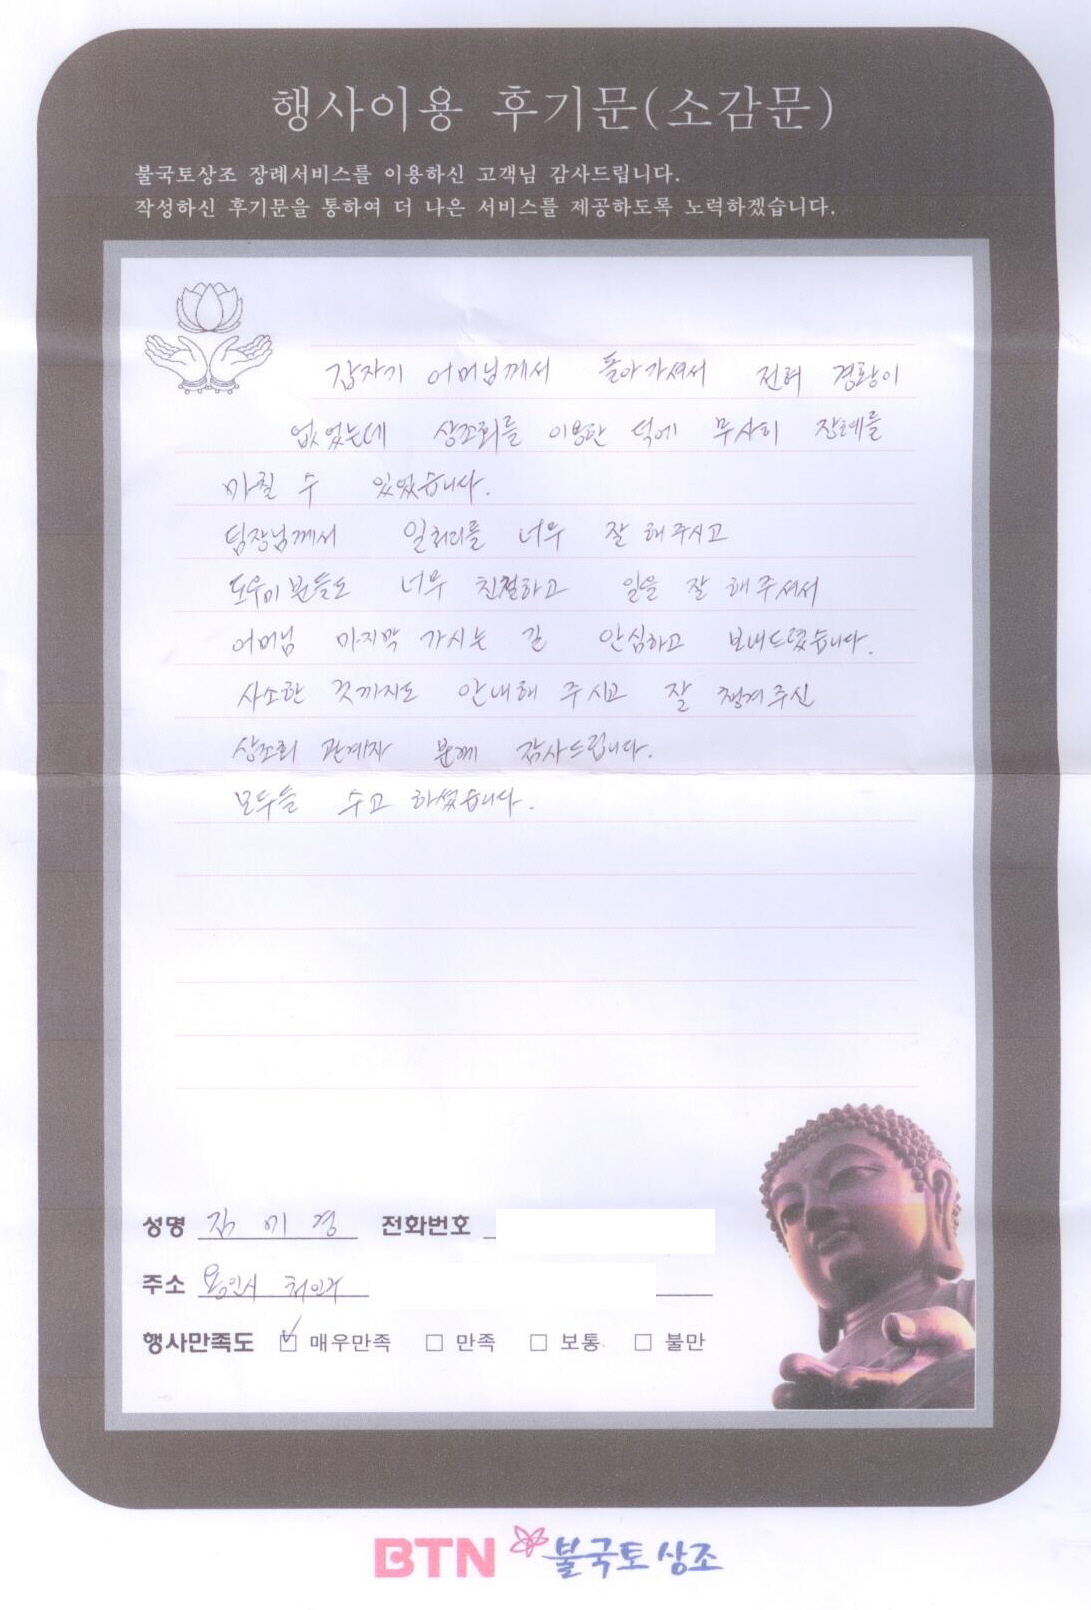 행사이용 후기문(소감문)
불국토상조 장례서비스를 이용하신 고객님 감사드립니다.
작성하신 후기문을 통하여 더 나은 서비스를 제공하도록 노력하겠습니다.
갑자기 어머님께서 돌아가셔서 전혀 경황이
없었는데 상조회를 이용한 덕에 무사히 장례를
마칠 수 있었습니다.
팀장님께서 일처리를 너무 잘 해주시고
도우미분들도 너무 친절하고 일을 잘 해주셔서
어머님 마지막 가시는 길 안심하고 보내드렸습니다.
사소한 것까지도 안내해 주시고 잘 챙겨주신
상조회 관계자 분께 감사드립니다.
모두들 수고 하셨습니다.
성명 김미경 전화번호
주소 용인시 처인구
행사만족도 ☑ 매우만족 □ 만족 □ 보통 □ 불만
BTN 불국토상조